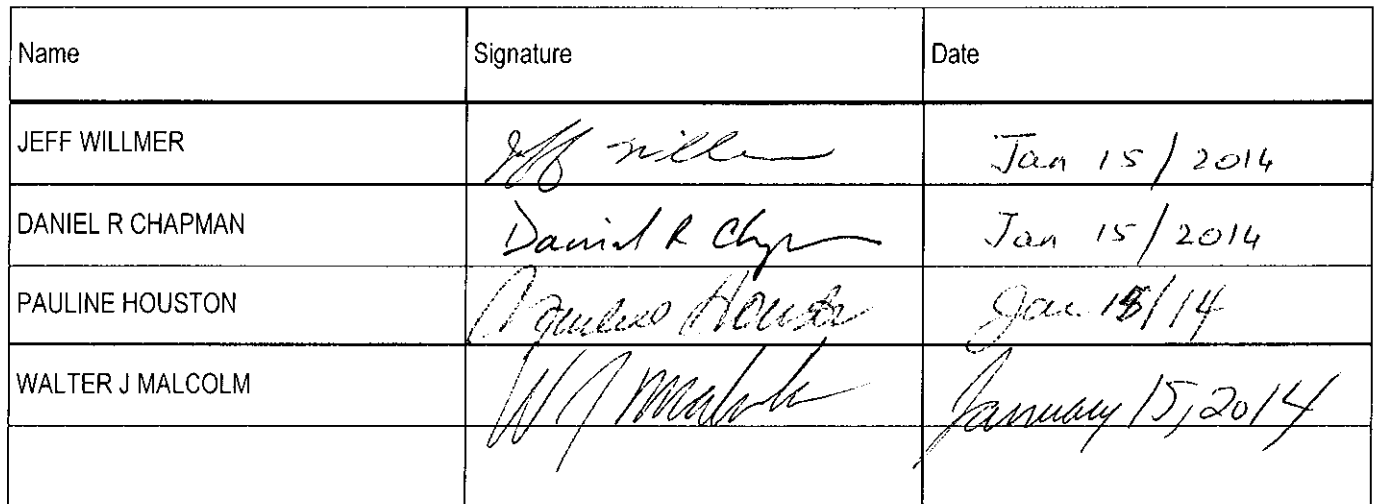 Name Signature Date
JEFF WILLMER Jeff Willmer Jan 15/2014
DANIEL R CHAPMAN Daniel R Chapman Jan 15/2014
PAULINE HOUSTON Pauline Houston Jan 15/14
WALTER J MALCOLM W J Malcolm January 15, 2014